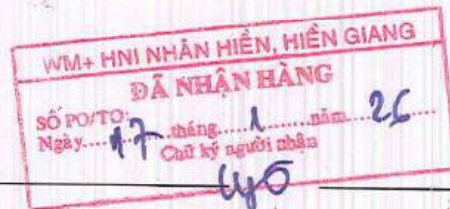 WM+ HNI NHÂN HIỀN, HIỀN GIANG
ĐÃ NHẬN HÀNG
SỐ PO/TO:
Ngày....17...tháng....1....năm...26....
Chữ ký người nhận